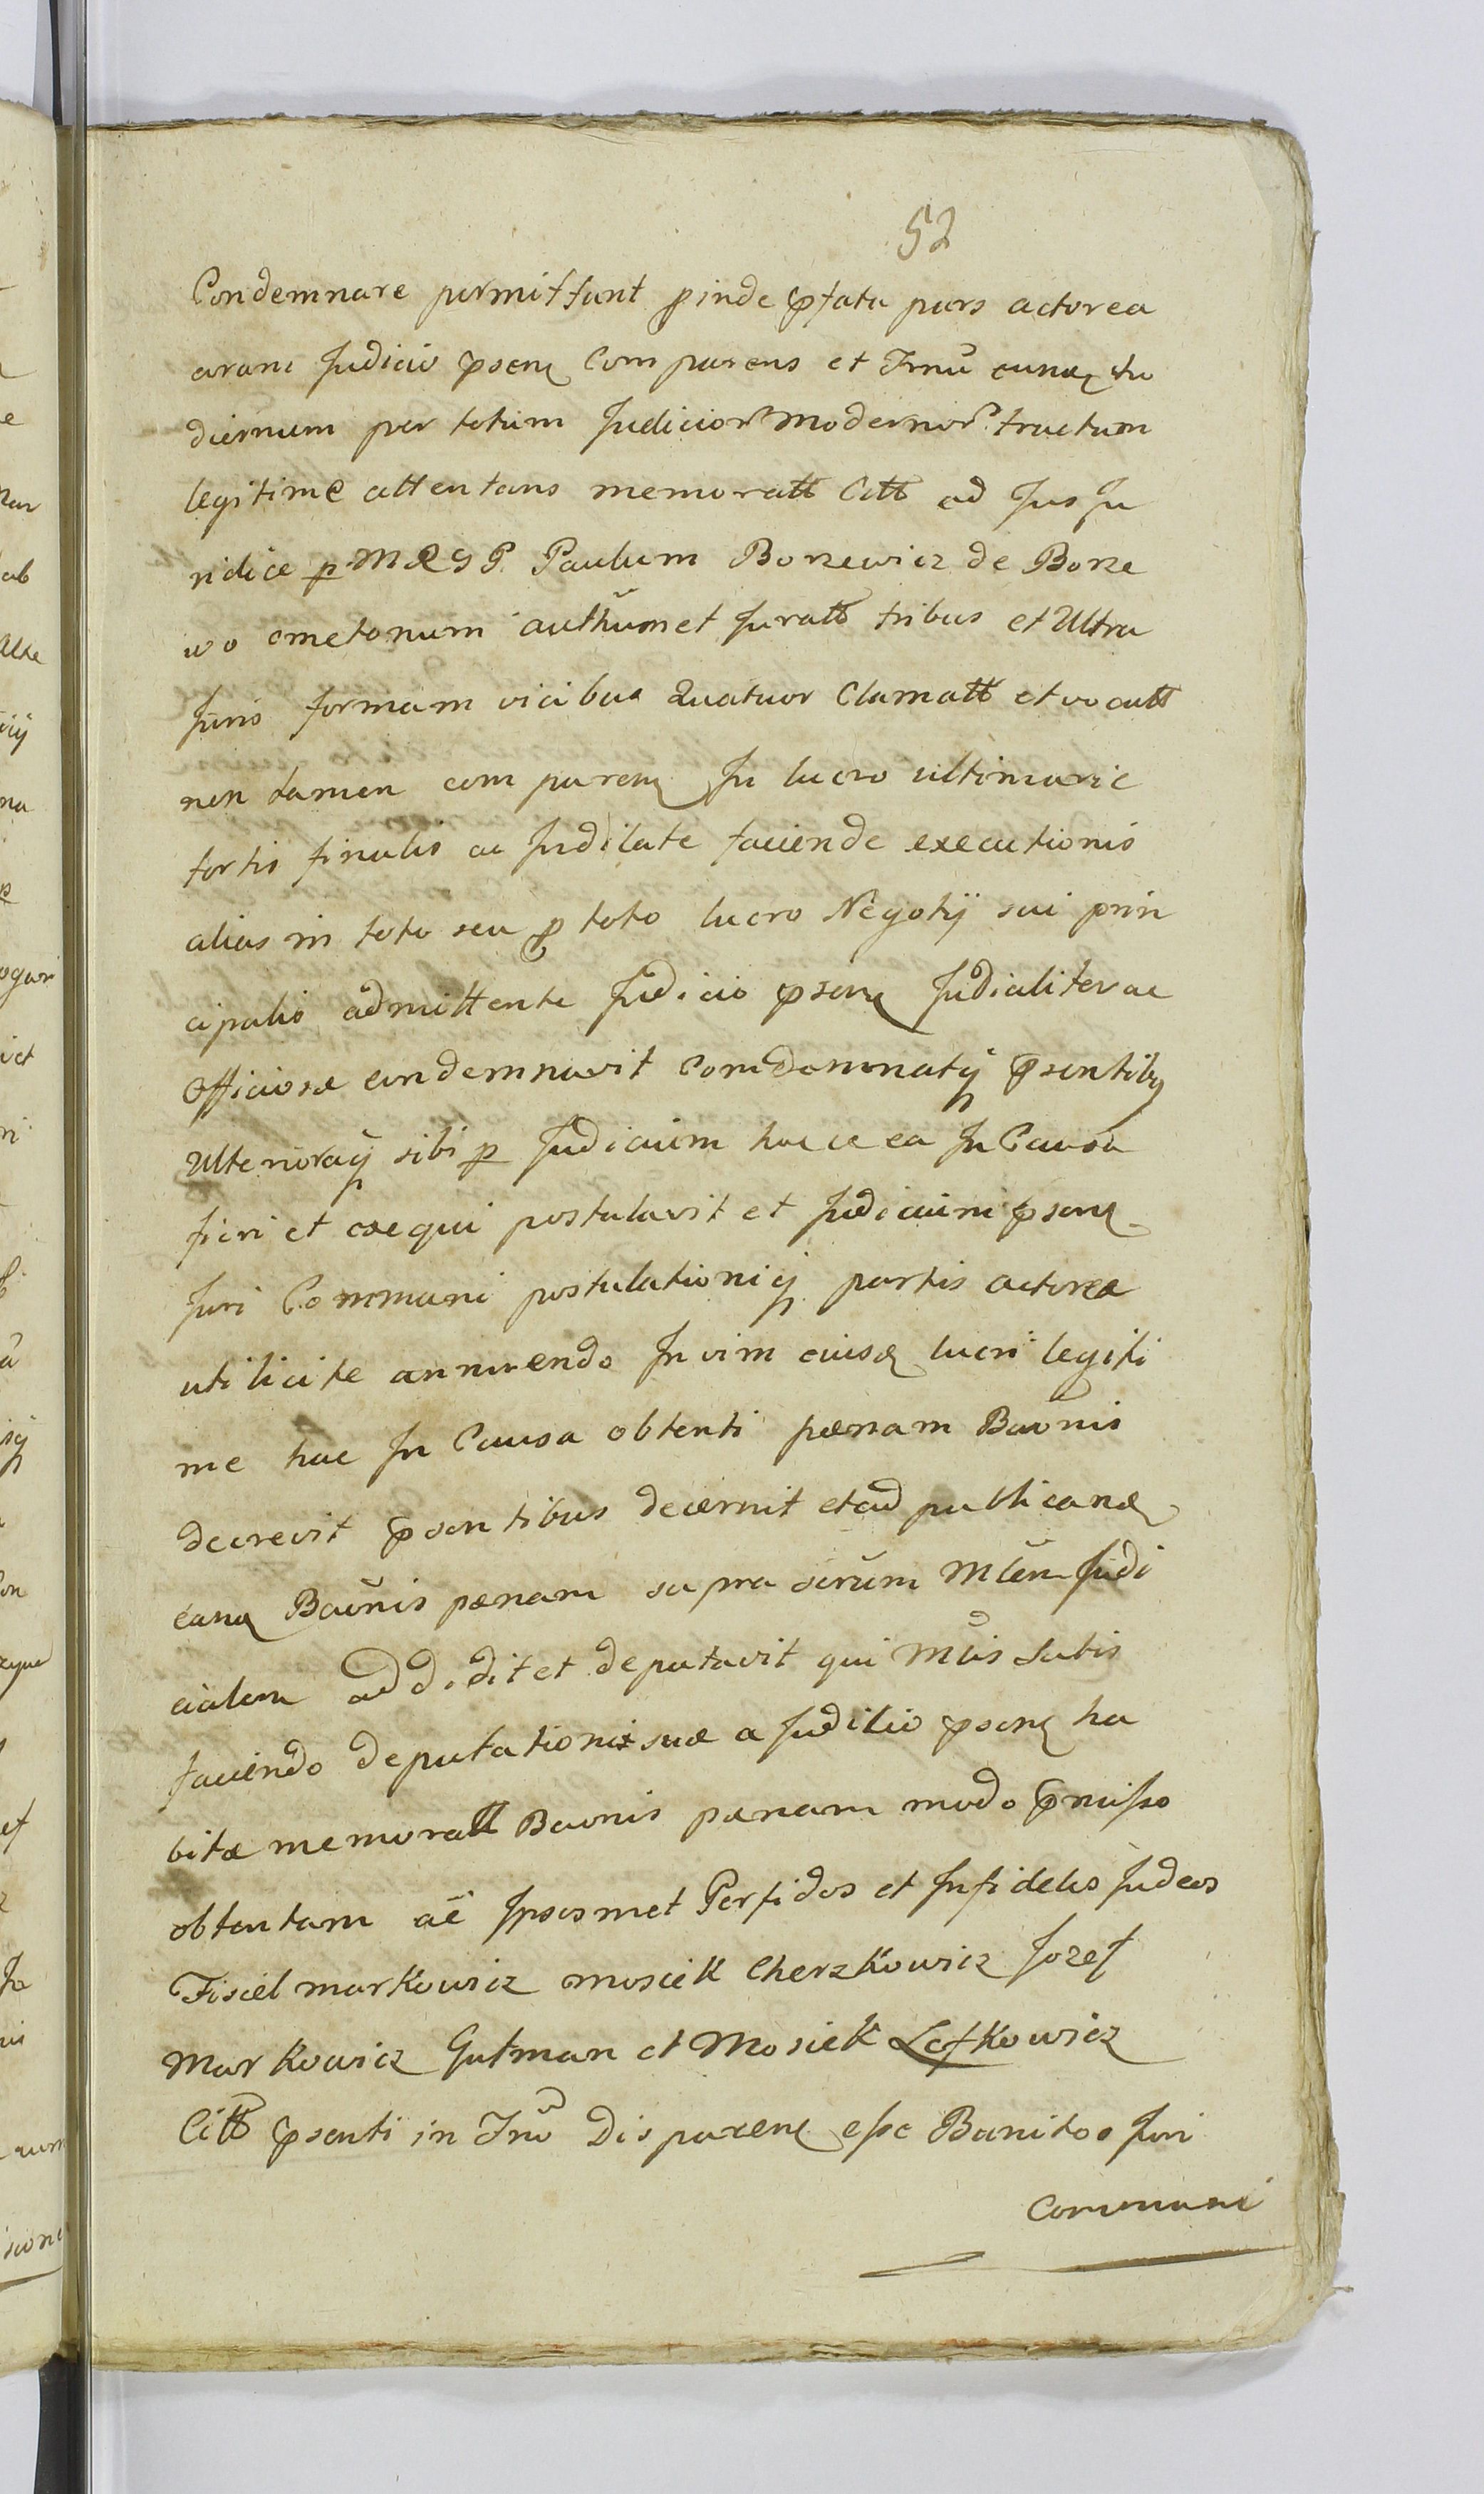 52
Condemnare permittant pinde ꝓfata pars actorea
coram Judicio ꝓsenꝫ Comparens et Trnũ hu
diernum per totum Judicior Modernor tractum
legitime attentans memoratt Citt ad Jus Ju
ridice p M R G P. Paulum Borzewicz de Borze
wo ometonum authũm et Juratt tribus et Ultra
Juris formam vicibus Quatuor Clamatt et vocatt
non tamen comparenꝫ In lucro ultimarie
fortis finalis ac Indilate faciende executionis
alias in toto seu ꝓ toto lucro Negotij sui prin
cipalis admittente Judicio ꝓsenꝫ Judicialiter ac
Officiose condemnavit Comdemnatqꝫ ꝓsentibꝫ
Ulterioraqꝫ sibi p Judicium hacce ea In Causa
fieri et exequi postulavit et Judicium ꝓsenꝫ
Juri Communi postulationiqꝫ partis actorea
utilicite annuendo In vim eiusꝫ lucri legiti
me hac In Causa obtenti pænam Baõnis
decrevit ꝓsentibus decernit et ad publicanꝫ
eanꝫ Baõnis pænam supra scrũm Mlem Judi
cialem addidit et deputavit qui Mlis Satis
faciendo deputationi suæ a Judicio ꝓsenꝫ ha
bitæ memoratt Baonis pænam modo ꝓmisso
obtentam aẽ Ipsosmet Perfidos et Infideles Judeos
Fisiel Markowicz Mosiek Cherzkowicz Jozef
Markowicz Gutman et Mosiek Lefkowicz
Citt ꝓsenti in Trno Disparenꝫ esse Banitos Juri
Communi